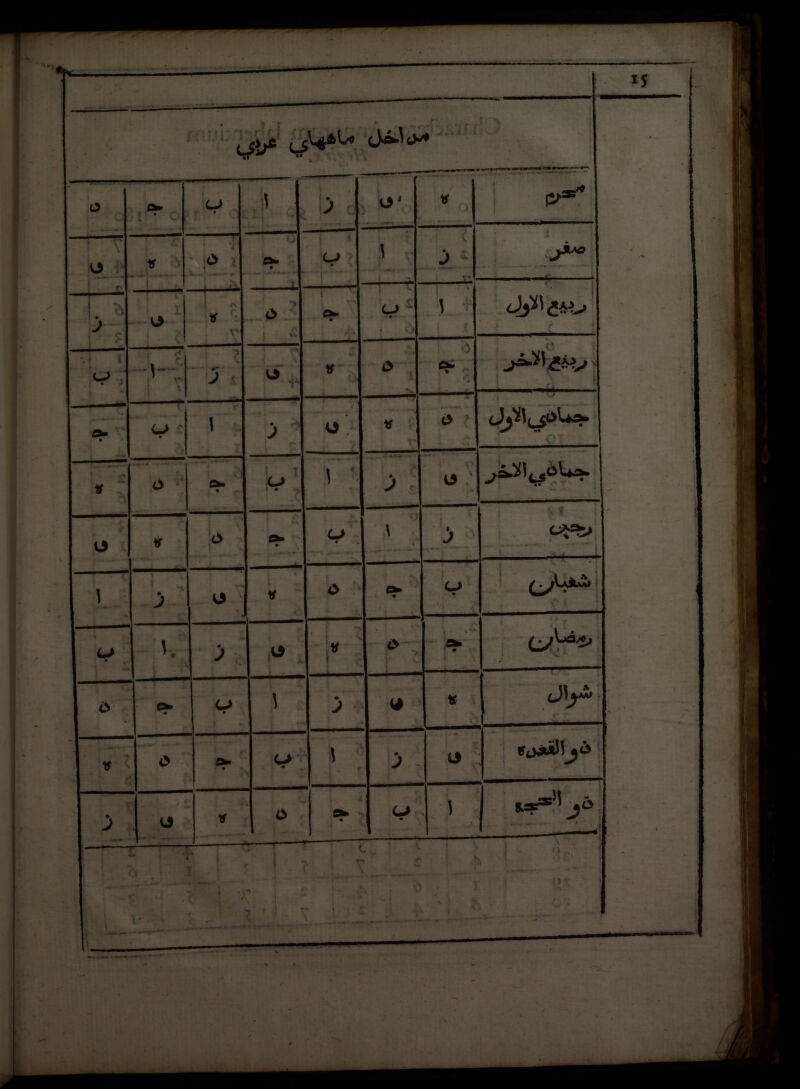 15
مداخل ماههاي عربي
محرم ه و ز ا ب ج د
صفر ز ا ب ج د ه و
ربيع الاول ا ب ج د ه و ز
ربيع الاخر ج د ه و ز ا ب
جمادي الاول د ه و ز ا ب ج
جمادي الاخر و ز ا ب ج د ه
رجب ز ا ب ج د ه و
شعبان ب ج د ه و ز ا
رمضان ج د ه و ز ا ب
شوال ه و ز ا ب ج د
ذو القعده و ز ا ب ج د ه
ذو الحجه ا ب ج د ه و ز